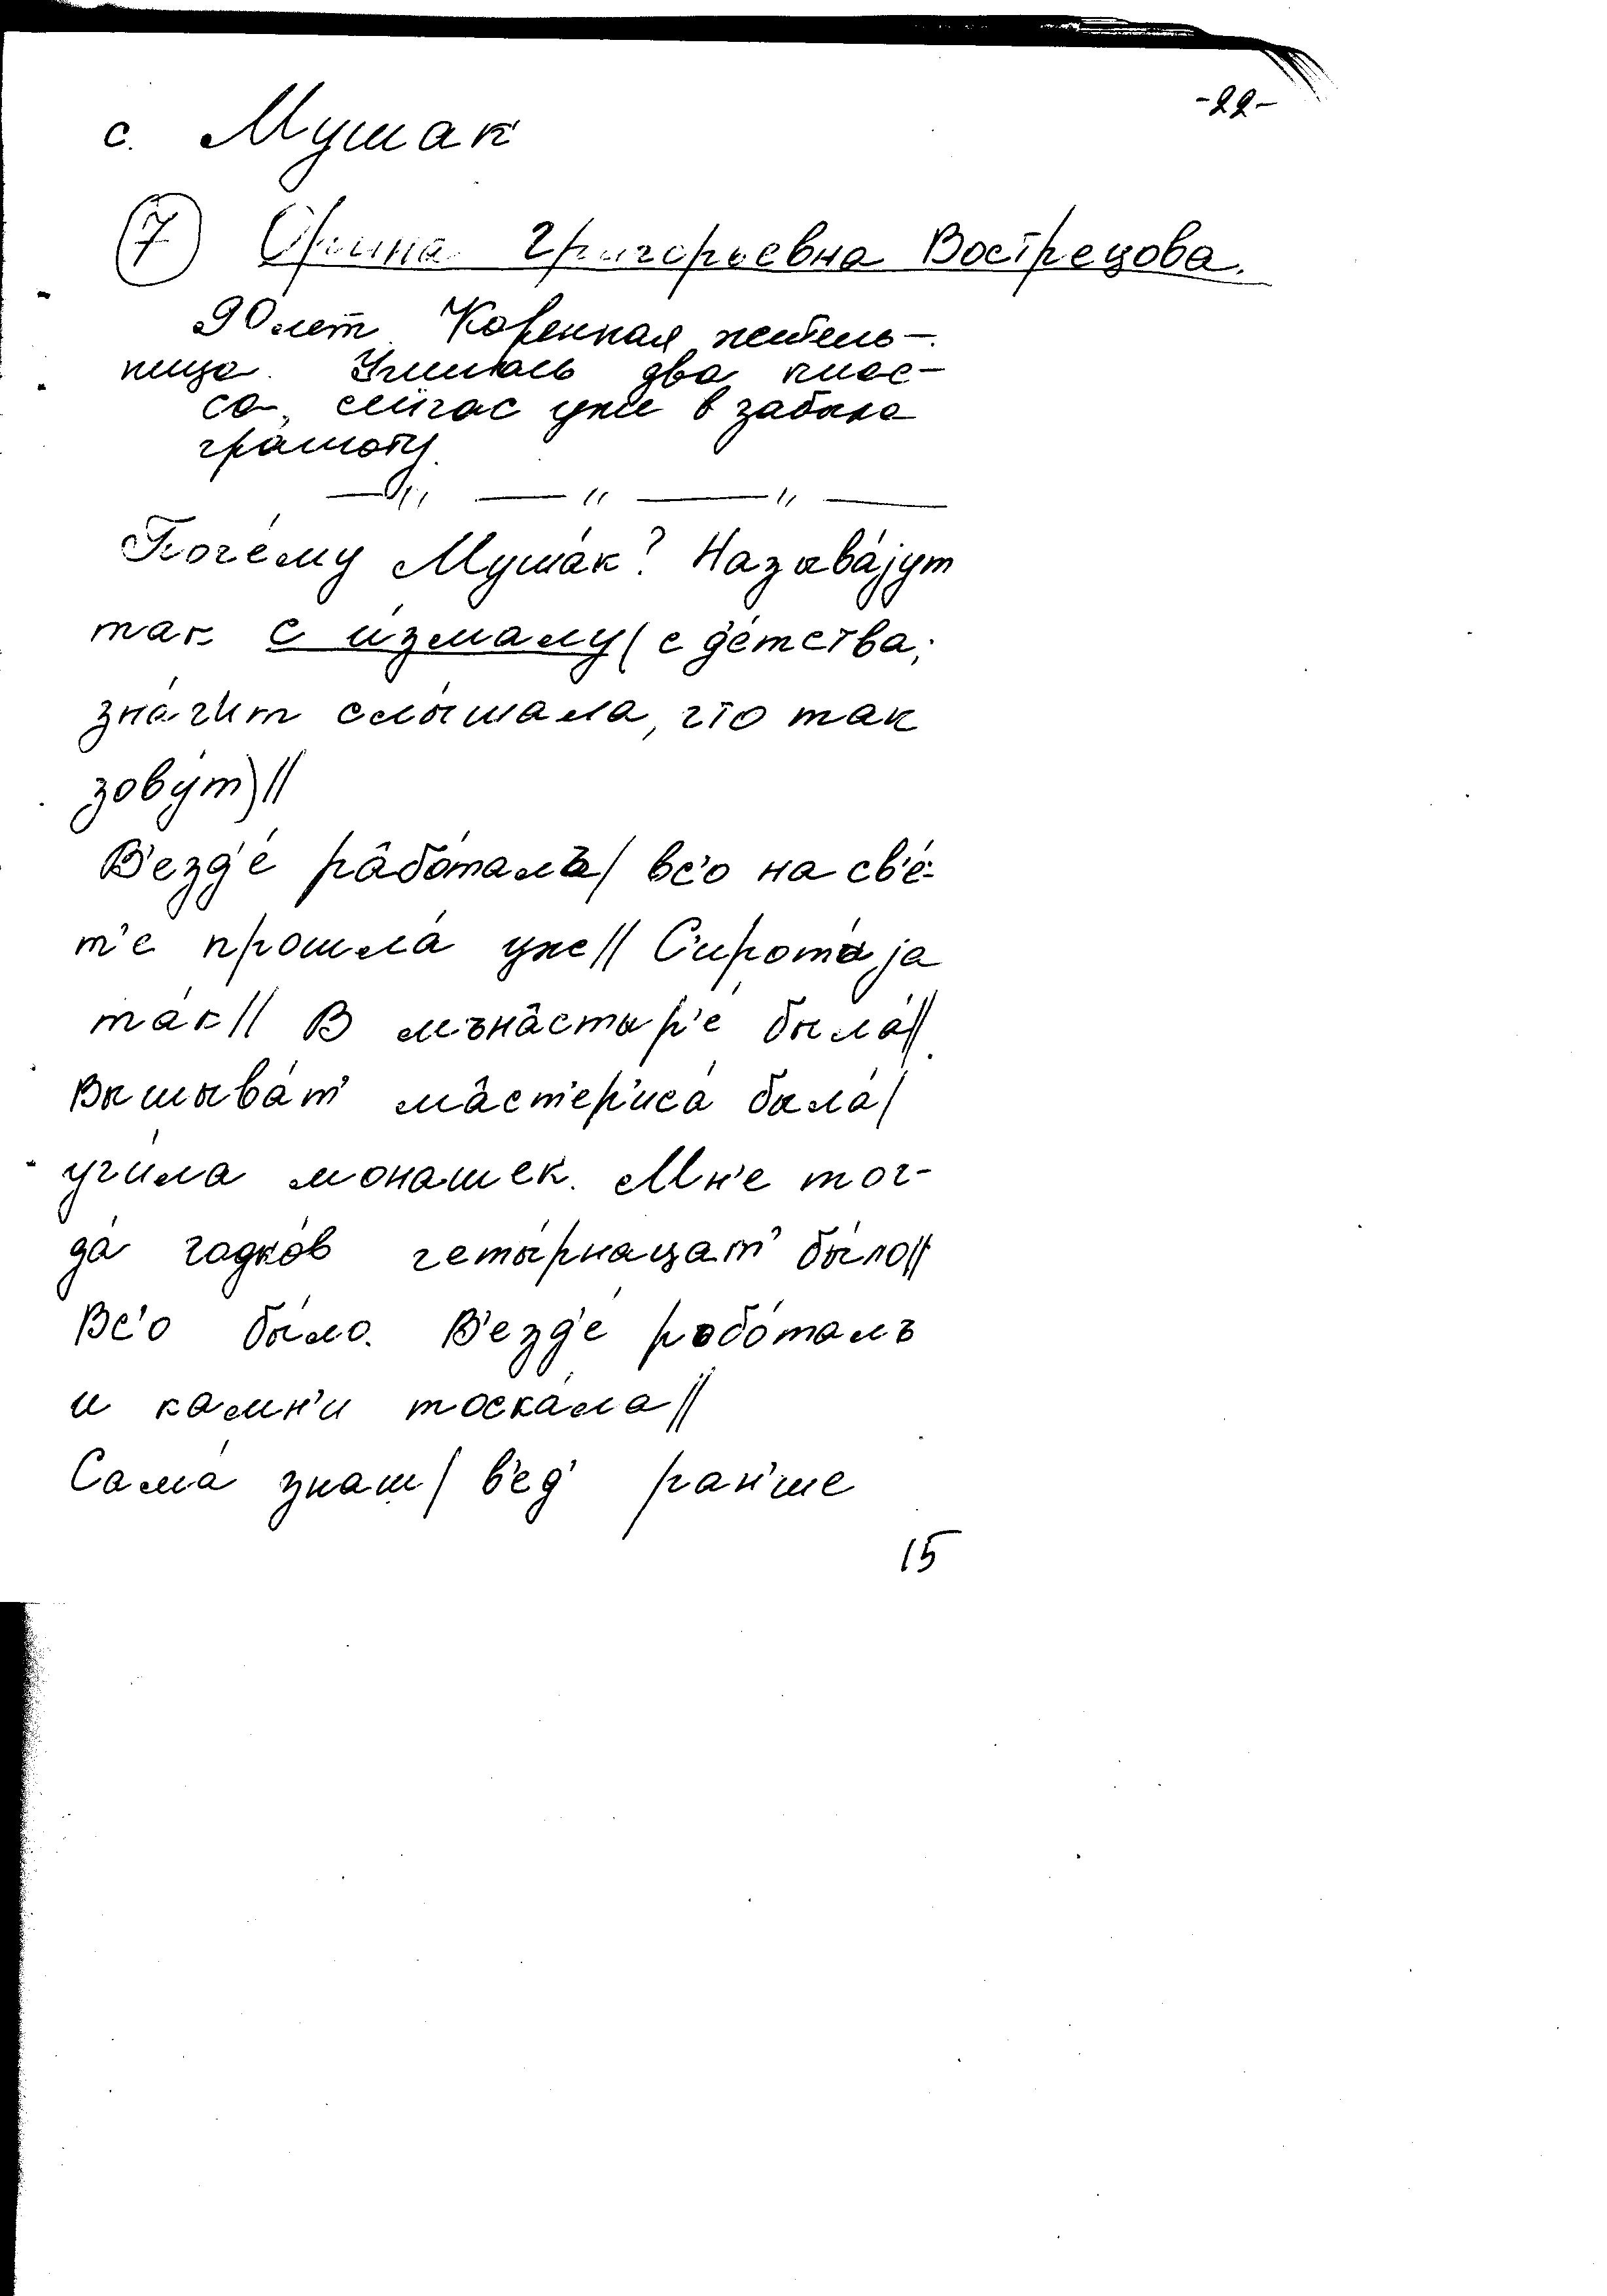 -22-
с. Мушак
7 Орина Григорьевна Вострецова.
90 лет. Коренная житель-
ница. Училась два клас-
са, сейчас уже в забыла
грамоту.
—〃—〃—〃—
Поче́му Муша́к? Называ́jут
так с и́змалу (с де́тства;
зна́чит слы́шала, что так
зову́т)//
В'езд'е́ рȃбо́талъ/ вс'о на св'е́-
т'е прошла́ уже// С'ирота́ jа
та́к// В мънȃстыр'е́ была́//
Вышыва́т' мȃст'ер'иса́ была́/
учи́ла монашек. Мн'е тог-
да́ годко́в четы́рнацат' бы́ло//
Вс'о бы́ло. В'езд'е́ робо́талъ
и камн'и тоска́ла//
Сама́ знаш/ в'ед' ран'ше
15